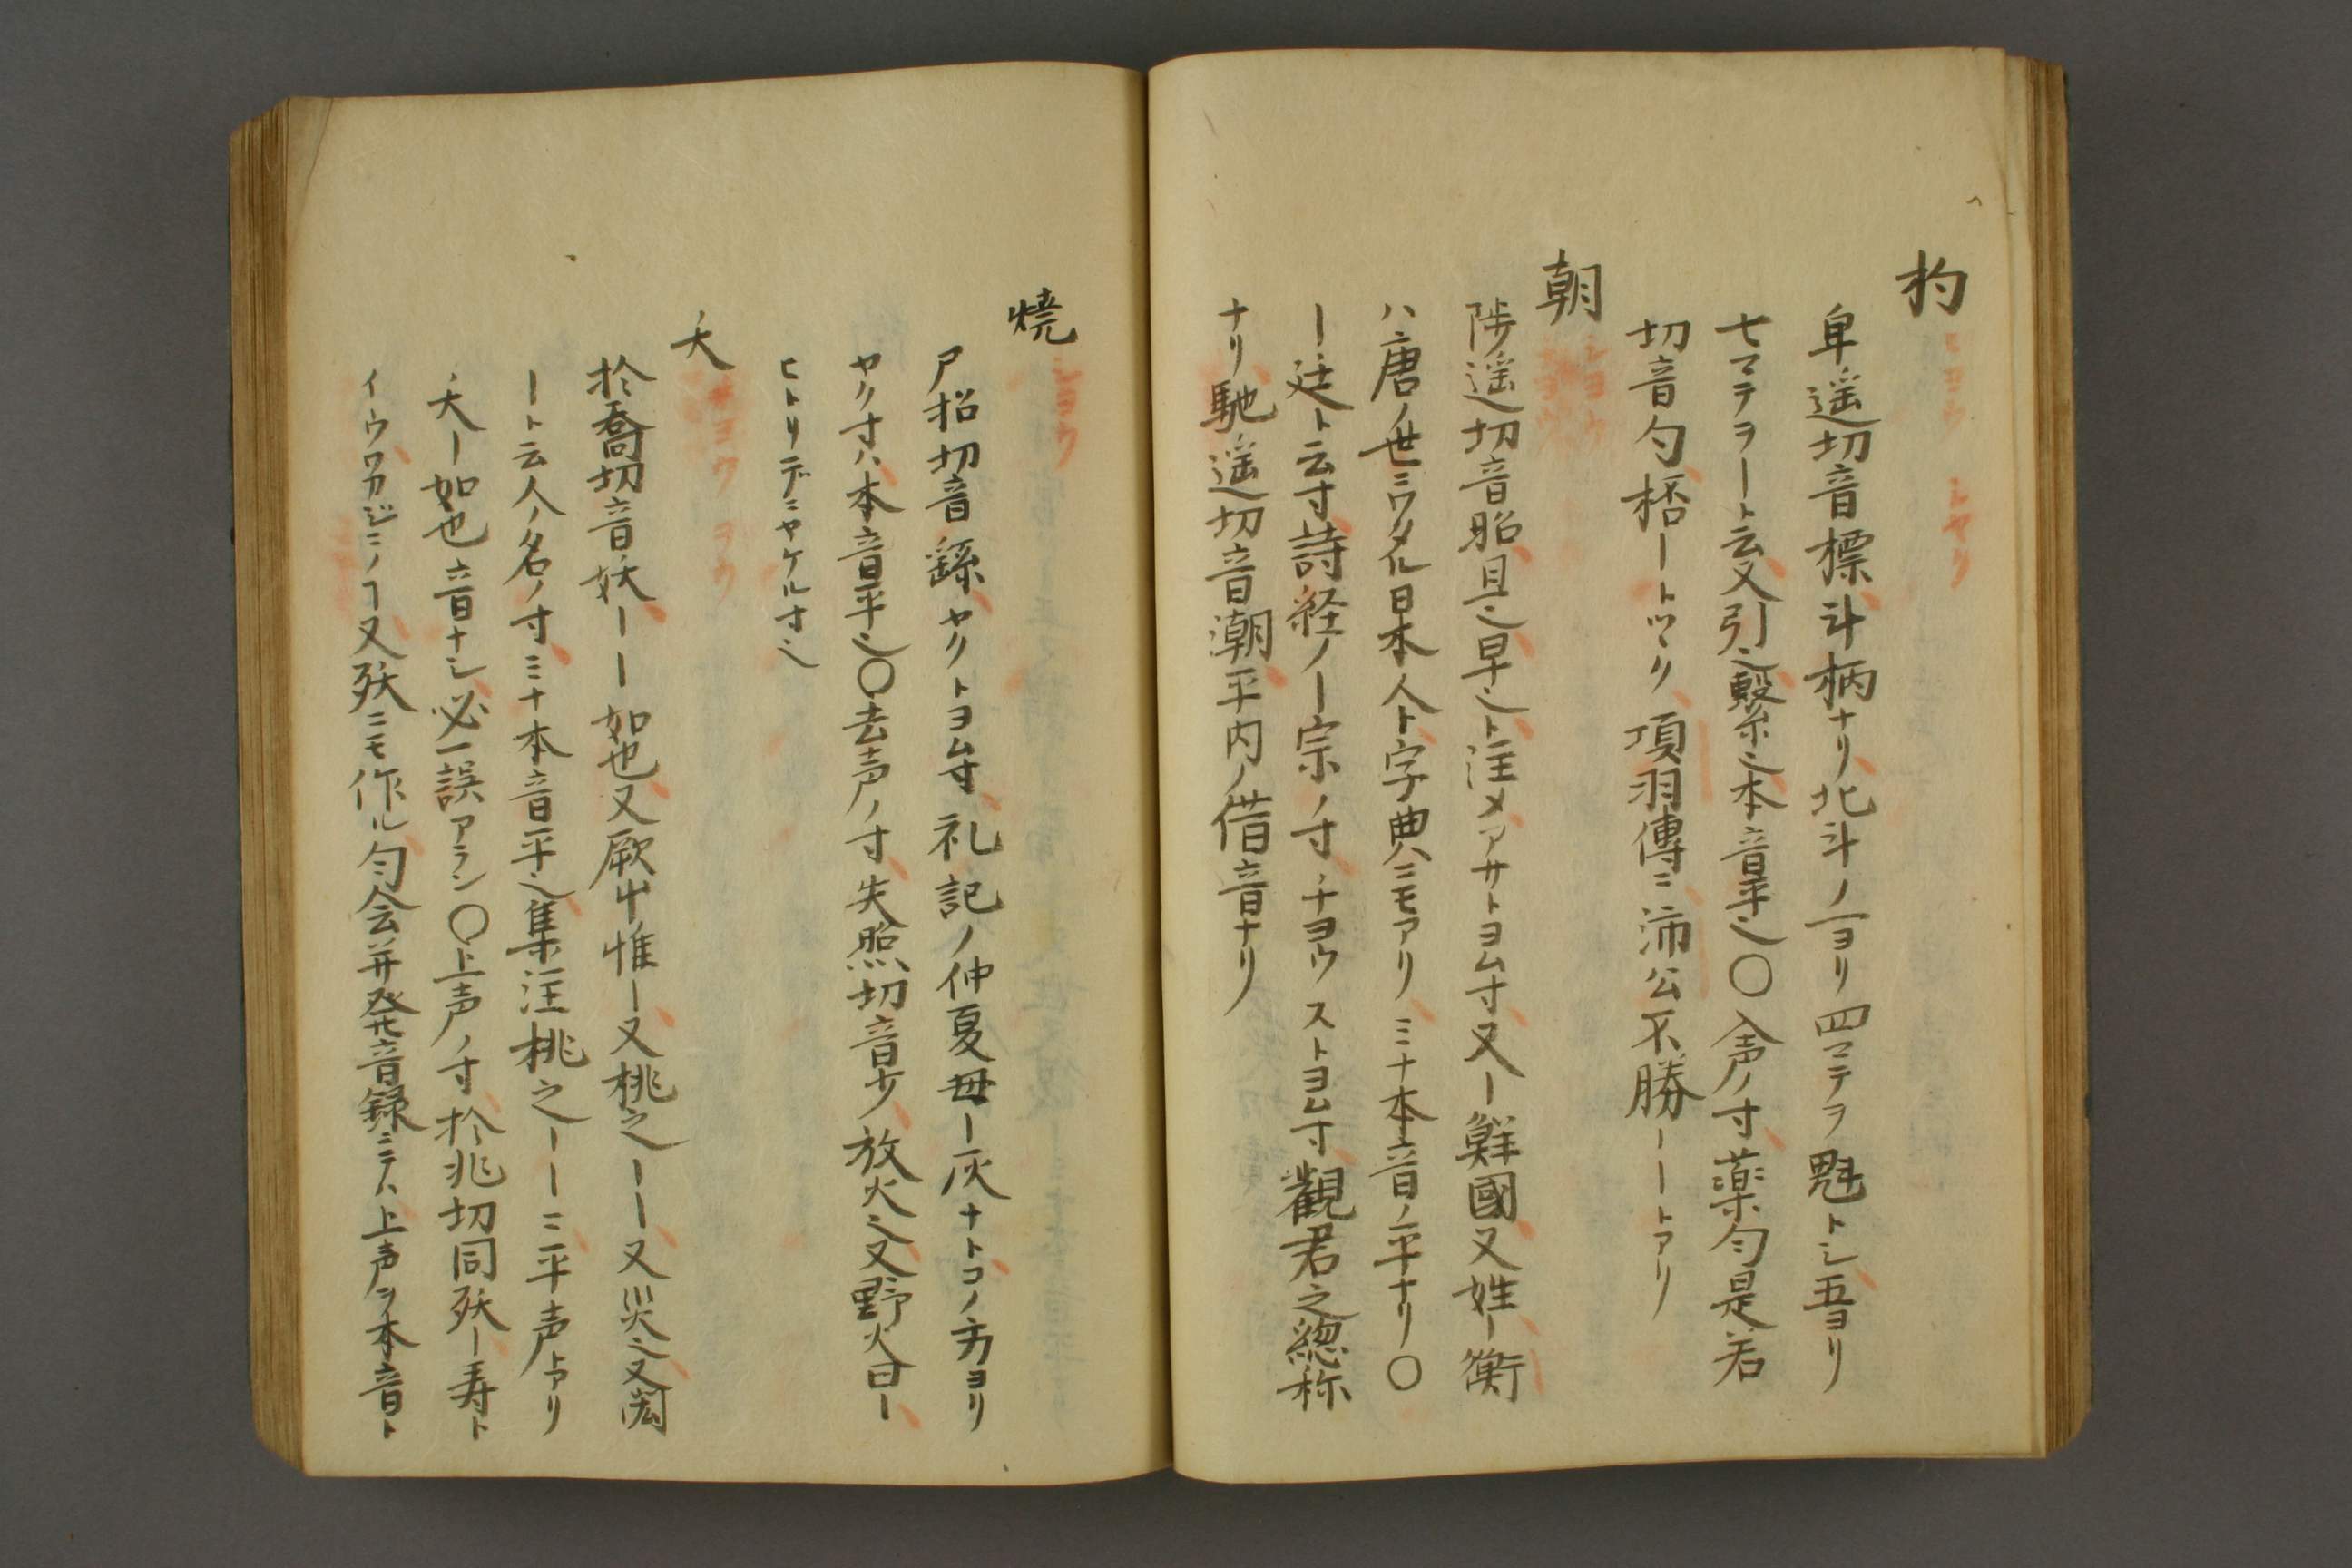 杓 ヒヨウ シヤク
卑遥切音標斗柄ナリ北斗ノ一ヨリ四マテヲ魁トシ五ヨリ
七マテヲ―ト云又引也繋也本音平也〇入声ノ寸薬勻是若
切音勺桮―トツヽク項羽傳ニ沛公不勝――トアリ
朝
陟遥切音昭旦也早也ト注メアサトヨム寸又―鮮國又姓―衡
ハ唐ノ世ニワタル日本人ト字典ニモアリミナ本音ノ平ナリ〇
―廷ト云寸詩経ノ―宗ノ寸チヨウストヨム寸觀君之總称
ナリ馳遥切音潮平内ノ借音ナリ
燒 シヨウ
尸招切音繇ヤクトヨム寸礼記ノ仲夏毋―灰ナトコノ方ヨリ
ヤク寸ハ本音平也〇去声ノ寸失照切音少放火也又野火曰―
ヒトリデニヤケル寸也
夭 ヨウ ヨウ
於喬切音妖――如也又厥屮惟―又桃之――又災也又閎
―ト云人ノ名ノ寸ミナ本音平也集注桃之――ニ平声トアリ
夭―如也音ナシ必一誤アラン〇上声ノ寸於兆切同殀―寿ト
イウワカジニノヿ又殀ニモ作ル勻会并発音録ニテハ上声ヲ本音ト